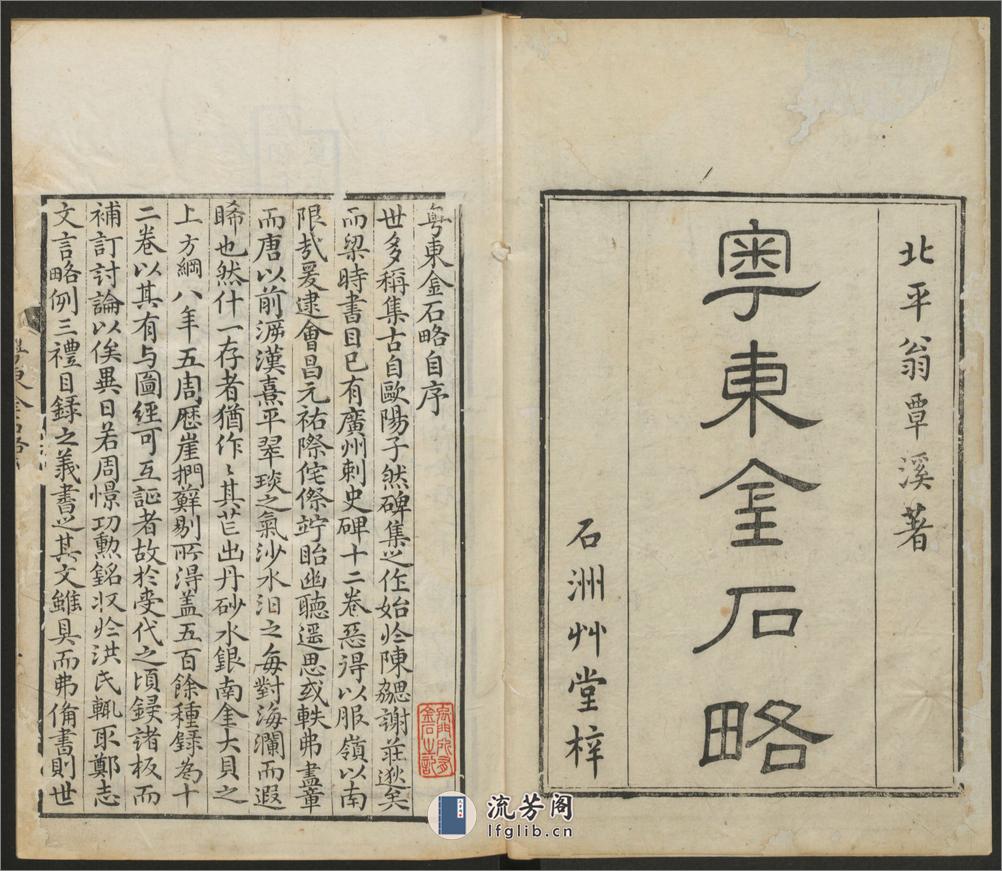 北平翁覃溪著
粵東金石略
石洲艸堂梓
粵東金石略自序
世多稱集古自歐陽子然碑集之作始於陳勰謝莊逖矣
而梁時書目已有廣州刺史碑十二卷惡得以服嶺以南
限哉爰逮會昌元祐際侘傺竚眙幽聽遥思或軼弗盡章
而唐以前泝漢熹平翠琰之氣沙水汩之每對海瀾而遐
睎也然什一存者猶作作其芒出丹砂水銀南金大貝之
上方綱八年五周歷崖捫蘚剔所得蓋五百餘種録為十
二卷以其有与圖經可互証者故於受代之頃録諸板而
補訂討論以俟異日若周憬功勲銘収於洪氏輒取鄭志
文言略例三禮目録之義書之其文雖具而弗偹書則世
流芳阁
lfglib.cn